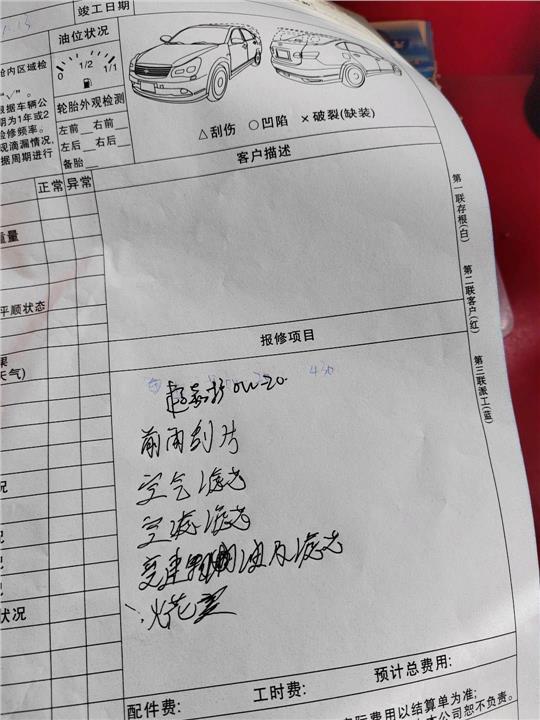 竣工日期
油位状况
0 1/2 1/1
舱内区域检
"√"。
根据车辆公
期为1年或2
检修频率。
现滴漏情况,
据周期进行
轮胎外观检测
左前 右前
左后 右后
备胎
△刮伤 ○凹陷 ×破裂(缺装)
客户描述
正常 异常
重量
平顺状态
果
天气)
况
况
况
状况
第一联存根(白)
第二联客户(红)
第三联派工(蓝)
报修项目
0W-20
前雨刮片
空气滤芯
空滤滤芯
变速 油及滤芯
火花塞
配件费: 工时费: 预计总费用:
际费用以结算单为准;
本公司恕不负责。